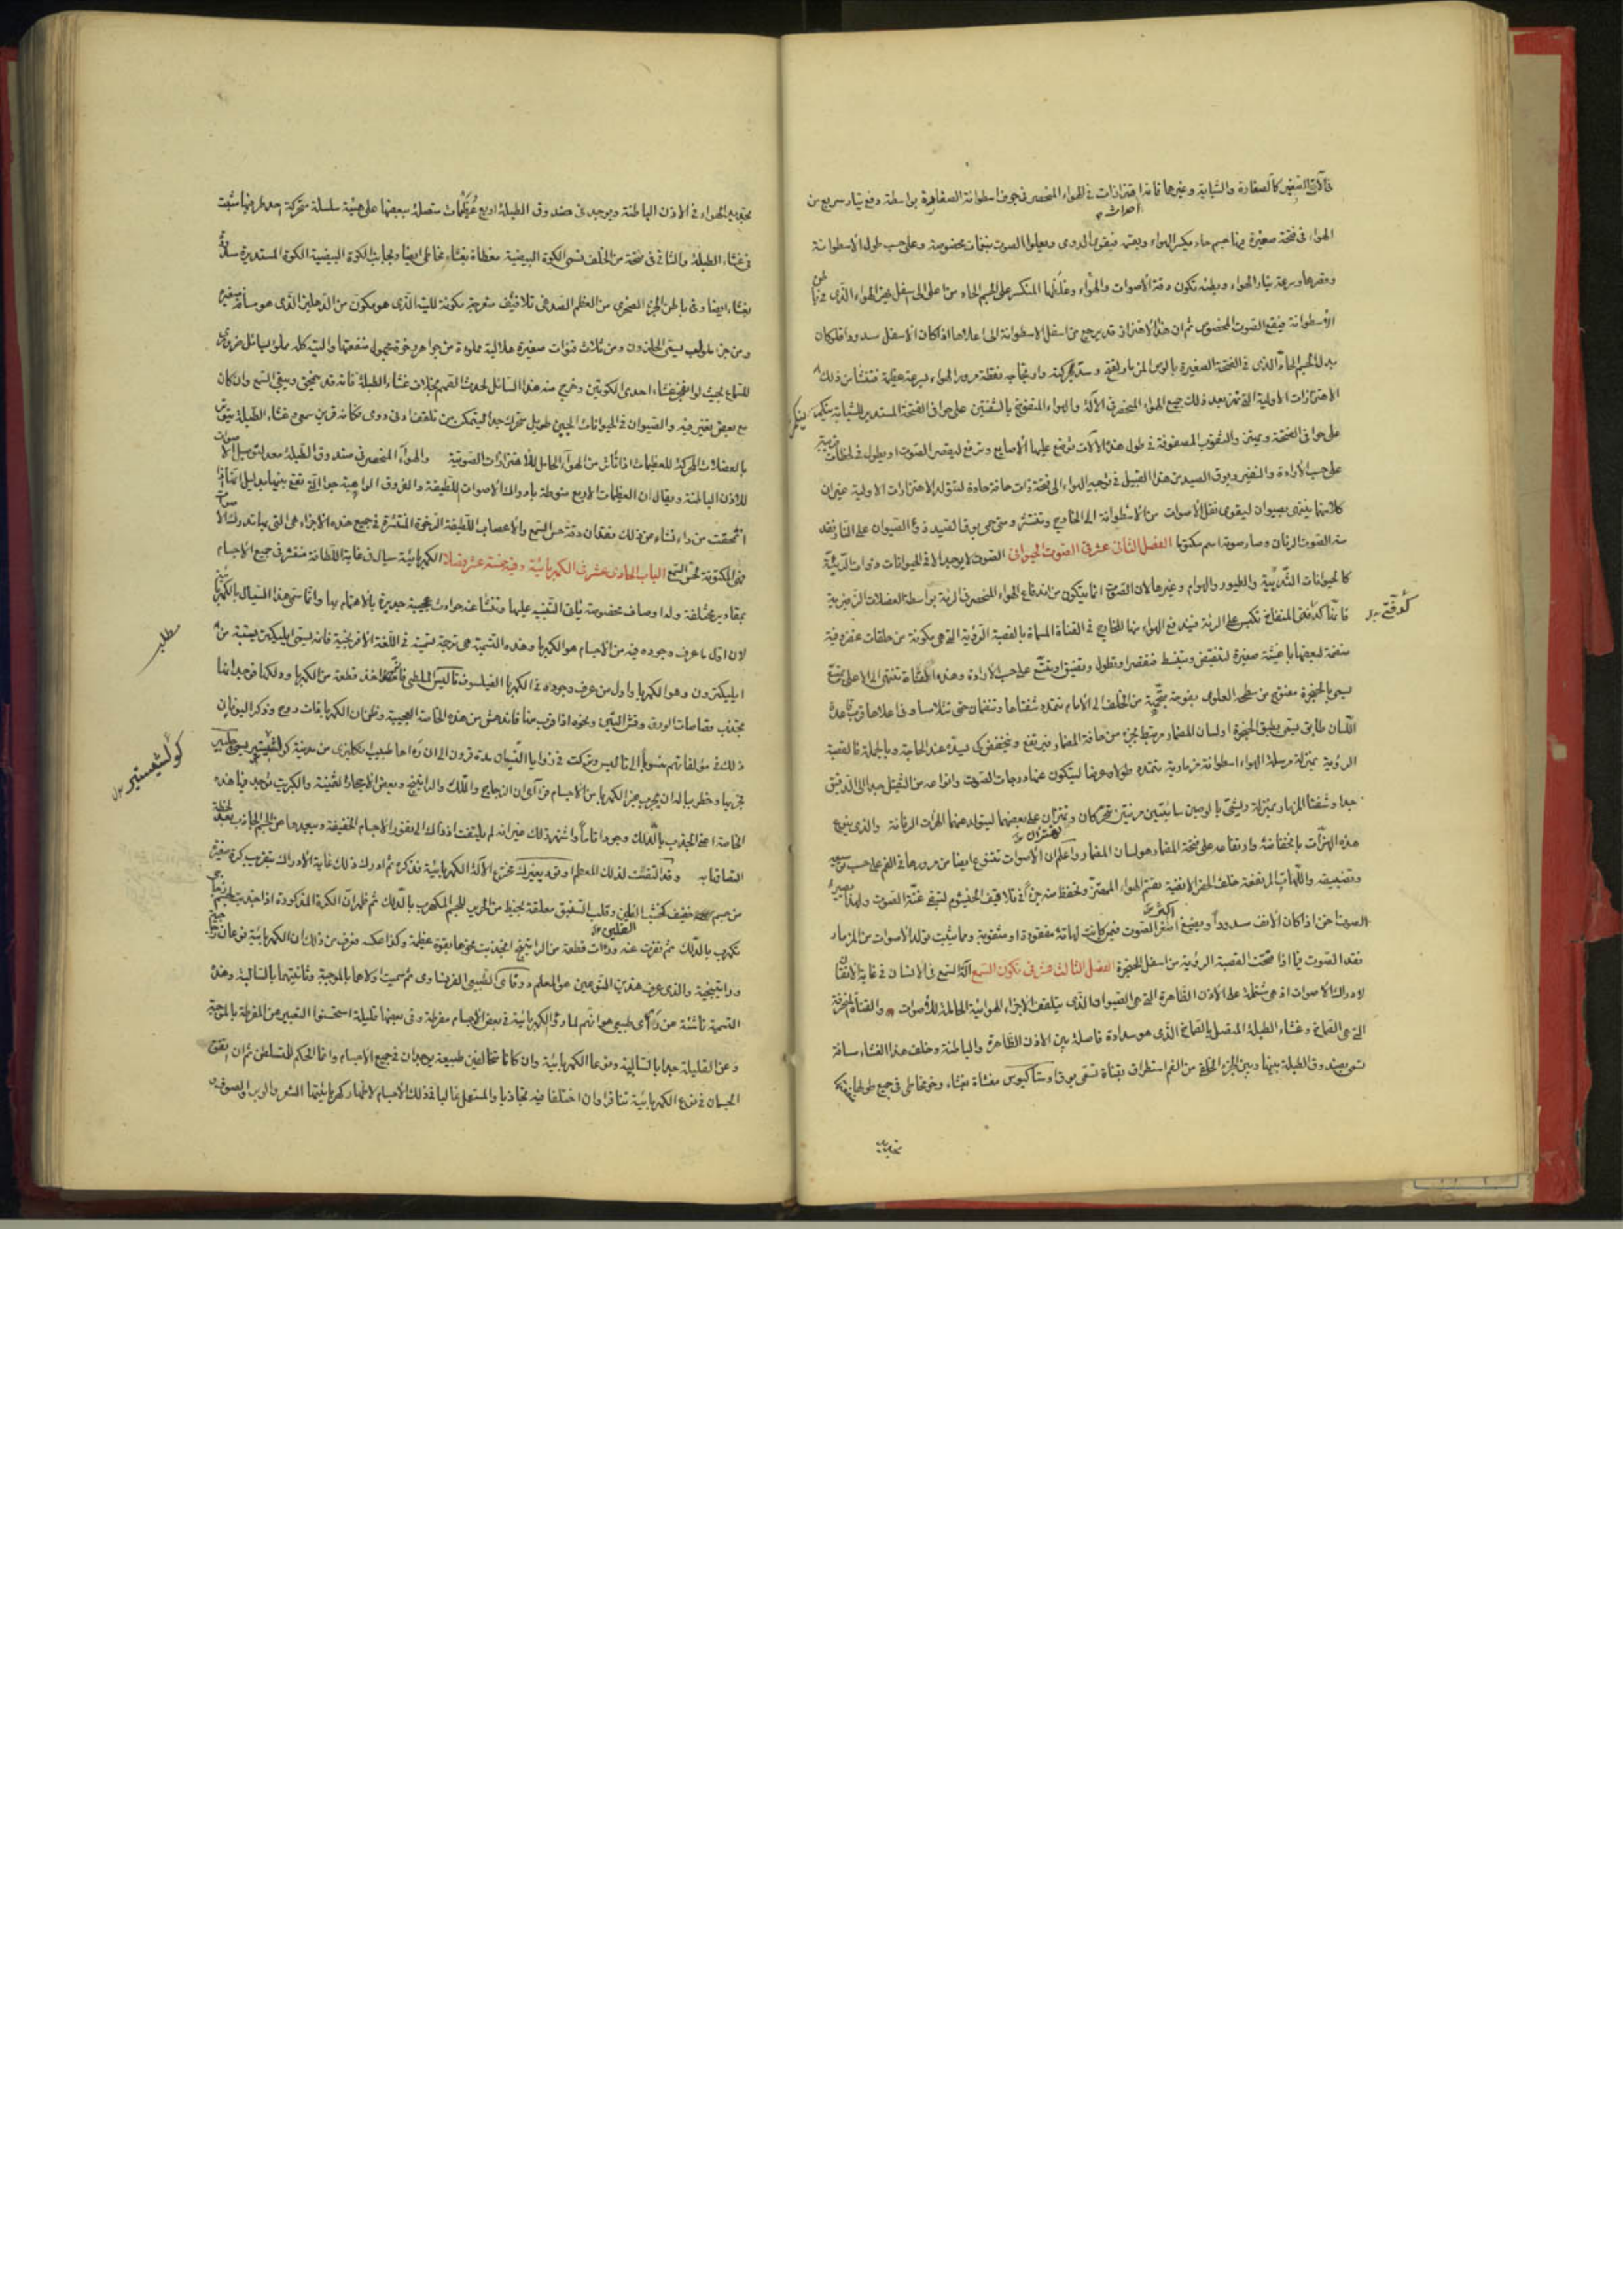 فآلات الصفير كالصفارة والشبابة وغيرها فانه اهتزازات في الهواء المنحصر في جوف اسطوانة الصفارة بواسطة دفع تيار سريع من
الهواء في فتحة صغيرة جسم حاد يكسر الهواء فيقوى الدوى ويعلوا الصوت بنغمات مخصوصة وعلى حسب طول الاسطوانة
وقصرها وسرعة تيار الهواء وبطئه تكون دقة الأصوات وغلظها المنكسر على الجسم الحاد من اعلى الى اسفل الهواء الذى في باطن
الأسطوانة فيقع الصوت المخصوص ثم ان هذا الاهتزاز قد يرجع من اسفل الاسطوانة الى اعلاها اذا كان الاسفل مسدودا فلو كان
بدل الجسم الحاد الذى في الفتحة الصغيرة مرور الهواء بسرعة عظيمة فتنشأ من ذلك
الاهتزازات الاولية التي بعد ذلك جميع الهواء المنحصر في الآلة والهواء المنفوخ بالشفتين على حوافى الفتحة المستدير للشبابة ينكسر
على حوافى الفتحة والثقوب المصفوفة في طول هذه الآلات توضع عليها الأصابع وترفع ليقصر الصوت او يطول في لحظات
على حسب الأرادة والنفير وبوق الصيد من هذا القبيل في توجيه الهواء الى فتحة ذات حافة حادة لتتولد الاهتزازات الاولية غير ان
كلا منهما ينتهى بصيوان ليقوى نقل الأصوات من الأسطوانة الى الخارج وتنتشر ومتى حي بوق الصيد ذو الصيوان على النار يفقد
منه الصوت الرنان وصار صوته اسم مكتوما الفصل الثانى عشر فى الصوت الحيوانى الصوت لا يوجد الا في الحيوانات ذوات الرئة
كالحيوانات الثديية والطيور والهوام وغيرها لان الصوت انما يتكون من اندفاع الهواء المنحصر في الرئة بواسطة العضلات
فانها كدفتى المنفاخ تكبس على الرئة فيندفع الهواء منها للخارج في القناة المسماة بالقصبة الرئوية التي هي مكونة من حلقات غضروفية
منضمة لبعضها باغشية صغيرة لتنقبض وتنبسط فتقصر او تطول وتضيق او تتسع على حسب الأرادة وهذه القناة تنتهى الى الاعلى بتنوع
يسمى بالحنجرة مفتوح من سطحه العلوى بفوهة متجهة من الخلف الى الأمام تتمدد شفتاها وتنضمان حتى تتلامسا وفى اعلاها قرب قاعدة
اللسان طابق يسمى بطبق الحنجرة او لسان المضمار مرتبط بجزء من حافة المضمار فيرتفع وينخفض كى يسده عند الحاجة وبالجملة فالقصبة
الرئوية بمنزلة مرسلة الهواء اسطوانة مزمارية تتمدد طولا وعرضا ليتكون عنها درجات الصوت وانواعه من الثقيل جدا الى الدقيق
جدا وشفتا المزمار بمنزلة وليشتى بالوصين سائبتين مرنتين تتحركان وتهتزان على بعضهما ليتولد عنهما الهزات الرنانة والذى ينوع
هذه الهزات بانخفاضه وارتفاعه على فتحة المضمار هو لسان المضمار واعلم ان الأصوات تتنوع ايضا من مرورها في الفم على حسب توسعه
وتضييقه واللهات المرتفعة خلف الحفر الانفية تقسم الهواء المهتز وتحفظ منه جزأ في تلافيف الخيشوم لتبقى غنة الصوت ولهذا يصير
الصوت اخن اذا كان الأنف مسدودا ويضيع اكثر الصوت فيمن كانت لهاته مفقودة او مثقوبة ومما يثبت تولد الأصوات من المزمار
فقد الصوت فيما اذا فتحت القصبة الرئوية من اسفل الحنجرة الفصل الثالث عشر فى تكون السمع آلة السمع في الانسان في غاية الاتقان
لادراك الأصوات اذ هي مشتملة على الأذن الظاهرة التي هي الصيوان الذى يتلقف الاجزاء الهوائية الحاملة للأصوات والقناة المنحرفة
التي هي الصماخ وغشاء الطبلة المتصل بالصماخ الذى هو سدادة فاصلة بين الاذن الظاهرة والباطنة وخلف هذا الغشاء مسافة
تسمى بصندوق الطبلة بينها وبين الجزء الخلفي من الفم استطراق بقناة تسمى بوق اوستاكيوس مغشاة بغشاء رخو مخاطى في جميع طولها
بتجديد
كدفتى
ينكسر
بتجديد الهواء في الاذن الباطنة ويوجد فى صندوق الطبلة اربع عظيمات متصلة ببعضها على هيئة سلسلة متحركة احد طرفيها مثبت
في غشاء الطبلة والثانى فى فتحة من الخلف تسمى الكوة البيضية مغطاة بغشاء مخاطى ايضا وبجانب الكوة البيضية الكوة المستديرة مسدودة
بغشاء ايضا وفى باطن الجزء الصخرى من العظم الصدغى تلافيف متعرجة مكونة للتيه الذى هو مكون من الدهليز الذى هو مسافة صغيرة
ومن جزء ملولب يسمى الحلزون ومن ثلاث قنوات صغيرة هلالية مملوءة من جواهر رخوة مجهولة منفعتها والتيه كله مملوء بسائل ضرورى
للسماع بحيث لو انفجر غشاء احدى الكوتين وخرج منه هذا السائل لحدث الصمم بخلاف غشاء الطبلة فانه قد ينخرق ويبقى السمع وان كان
مع بعض تغير فيه والصيوان في الحيوانات الجبن طويل متحرك جدا ليتمكن من تلقف ادنى دوى مكانه قرين سمعى وغشاء الطبلة
بالعضلات المحركة للعظيمات اذا تأثر من الهواء الحامل للاهتزازات الصوتية والهواء المنحصر فى صندوق الطبلة معد لتوصيل الأصوات
للاذن الباطنة ويقال ان العظيمات الاربع منوطة بادراك الأصوات اللطيفة والفروق الواهية جدا التي تقع بينها بدليل انها اذا
انمحقت من داء نشاء من ذلك فقدان دقة حس السمع والأعصاب اللطيفة الرخوة المنتشرة في جميع هذه الاجزاء هى التى بها تدرك الأصوات
فهى المكونة لحس السمع الباب الحادى عشر فى الكهربائية وفيه خمسة عشر فصلا الكهربائية سيال فى غاية اللطافة منتشر فى جميع الاجسام
بمقادير مختلفة وله اوصاف مخصوصة يأتى التنبيه عليها وتنشأ عنه حوادث عجيبة جديرة بالاهتمام بها وانما سمى هذا السيال بالكهربائية
لان اول ما عرف وجوده فيه من الأجسام هو الكهربا وهذه التسمية هى ترجمة تسميته في اللغة الافرنجية فانه يسمى ايليكتريسيته من
ايليكترون وهو الكهربا واول من عرف وجوده في الكهربا الفيلسوف تاليس الملطى فانه اخذ قطعة من الكهربا ودلكها فوجدها
تجتذب قصاصات الورق وقش التبن ونحوه اذا قرب منها فاندهش من هذه الخاصة العجيبة وظن ان الكهربا ذات روح وذكر اليونان
ذلك في مؤلفاتهم منسوبا الى تاليس وتركت في زوايا النسيان مدة قرون الى ان رءاها طبيب انكليزى من مدينة كولشيستير يسمى جلبير
فجربها وخطر بباله ان يجرب غير الكهربا من الأجسام فرآى ان الزجاج واللك والراتينج وبعض الاحجار الثمينة والكبريت توجد فيها هذه
الخاصة اعنى الجذب بالدلك وجودا تاما واشتهر ذلك غير انه لم يلتفت اذ ذاك الى نفور الاجسام الخفيفة وبعدها عن الجسم الجاذب بعد لحظة
التصاقها به وقد التفت لذلك المعلم اوتو ديغيريك مخترع الآلة الكهربائية فذكره ثم ادرك ذلك غاية الادراك بتقريب كرة صغيرة
من جسم خفيف كخشب الفلين وقلب السفيق معلقة بخيط من الحرير للجسم المكهرب بالدلك ثم ظهر ان الكرة المذكورة اذا جذبت لجسم
تكهرب بالدلك ثم نفرت عنه ودنت قطعة من الراتينج انجذبت نحوها بقوة عظيمة وكذا عكسه فعرف من ذلك ان الكهربائية نوعان زجاجية
وراتينجية والذى عرف هذين النوعين هو المعلم دوفاى الطبيعى الفرنساوى ثم سميت اولاهما بالموجبة وثانيتهما بالسالبة وهذه
التسمية ناشئة عن رأى طبيعى هو انهم لما رأوا الكهربائية في بعض الاجسام مفرطة وفى بعضها قليلة استحسنوا التعبير عن المفرطة بالموجبة
وعن القليلة جدا بالسالبة ونوعا الكهربائية وان كانا متخالفين طبيعة يوجدان في جميع الاجسام وانما الحكم للمتسلطن ثم ان اتفق
الجسمان في نوع الكهربائية تنافرا وان اختلفا فيه تجاذبا والمستعمل غالبا في ذلك الأجسام لاظهار كهربائيتها الشعر والوبر والصوف
مطلب
كولشيستير